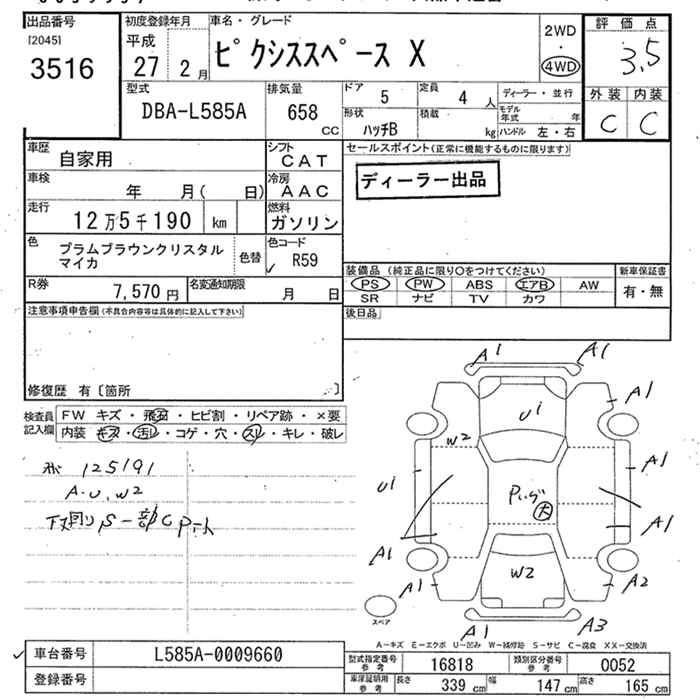 出品番号
[2045]
3516
初度登録年月
平成
27 2月
車名・グレード
ピクシススペース X
2WD
・
4WD
評価点
3.5
外装 内装
C C
型式
DBA-L585A
排気量
658
CC
ドア 5
定員 4人
ディーラー・並行
形状
ハッチB
積載
kg
モデル年式 年
ハンドル 左・右
車歴
自家用
シフト
CAT
車検
年 月( 日)
冷房
AAC
走行
12万5千190 km
燃料
ガソリン
色
プラムブラウンクリスタル
マイカ
色替
色コード
R59
R券
7,570円
名変通知期限
月 日
セールスポイント(正常に機能するものに限ります)
ディーラー出品
装備品 (純正品に限り○をつけてください)
PS PW ABS エアB AW
SR ナビ TV カワ
新車保証書
有・無
後日品
注意事項申告欄(不具合内容等は具体的に記入して下さい)
修復歴 有〔箇所 〕
検査員
記入欄
FW キズ・飛石・ヒビ割・リペア跡・×要
内装 キス・汚レ・コゲ・穴・スレ・キレ・破レ
125191
A.U.W2
下廻り,S 一部C P.ート
A1
A1
A1
U1
W2
A1
U1
P.レグ
大
A1
A1
A1
W2
A2
A1
A3
スペア
A-キズ E-エクボ U-凹み W-補修跡 S-サビ C-腐食 XX-交換済
車台番号
L585A-0009660
登録番号
型式指定番号
参考
16818
類別区分番号
参考
0052
車庫証明用
参考
長さ 339cm 幅 147cm 高さ 165cm